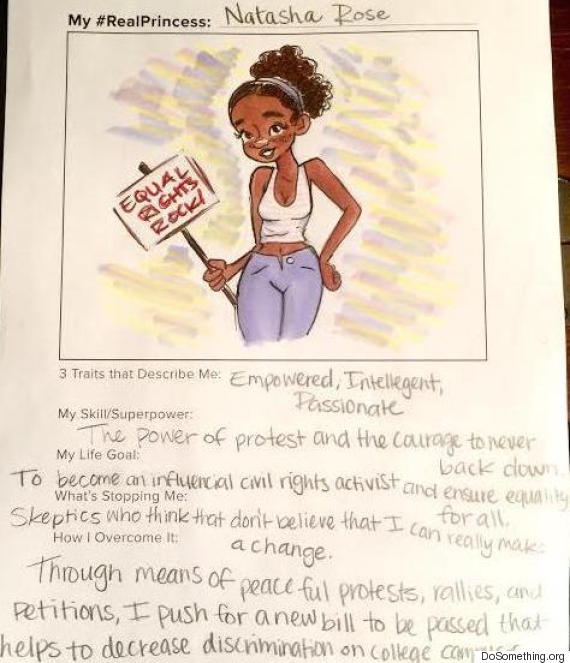 My #RealPrincess: Natasha Rose
EQUAL
RIGHTS
ROCK!
3 Traits that Describe Me: Empowered, Intellegent,
Passionate
My Skill/Superpower:
The power of protest and the courage to never
back down.
My Life Goal:
To become an influencial civil rights activist and ensure equality
for all.
What's Stopping Me:
Skeptics who think that don't believe that I can really make
a change.
How I Overcome It:
Through means of peaceful protests, rallies, and
petitions, I push for a new bill to be passed that
helps to decrease discrimination on college
DoSomething.org